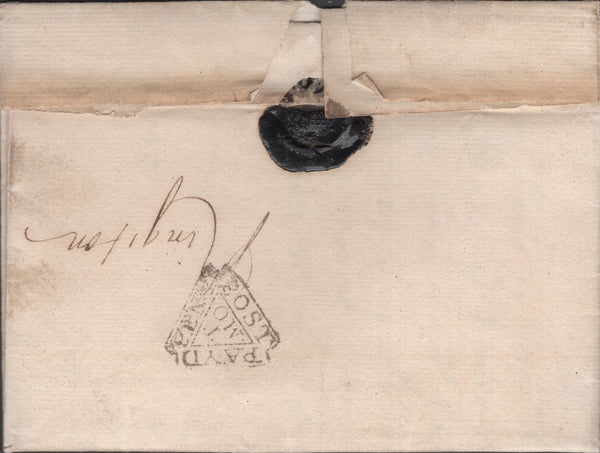 Kingston
PENY POST PAYD
MO